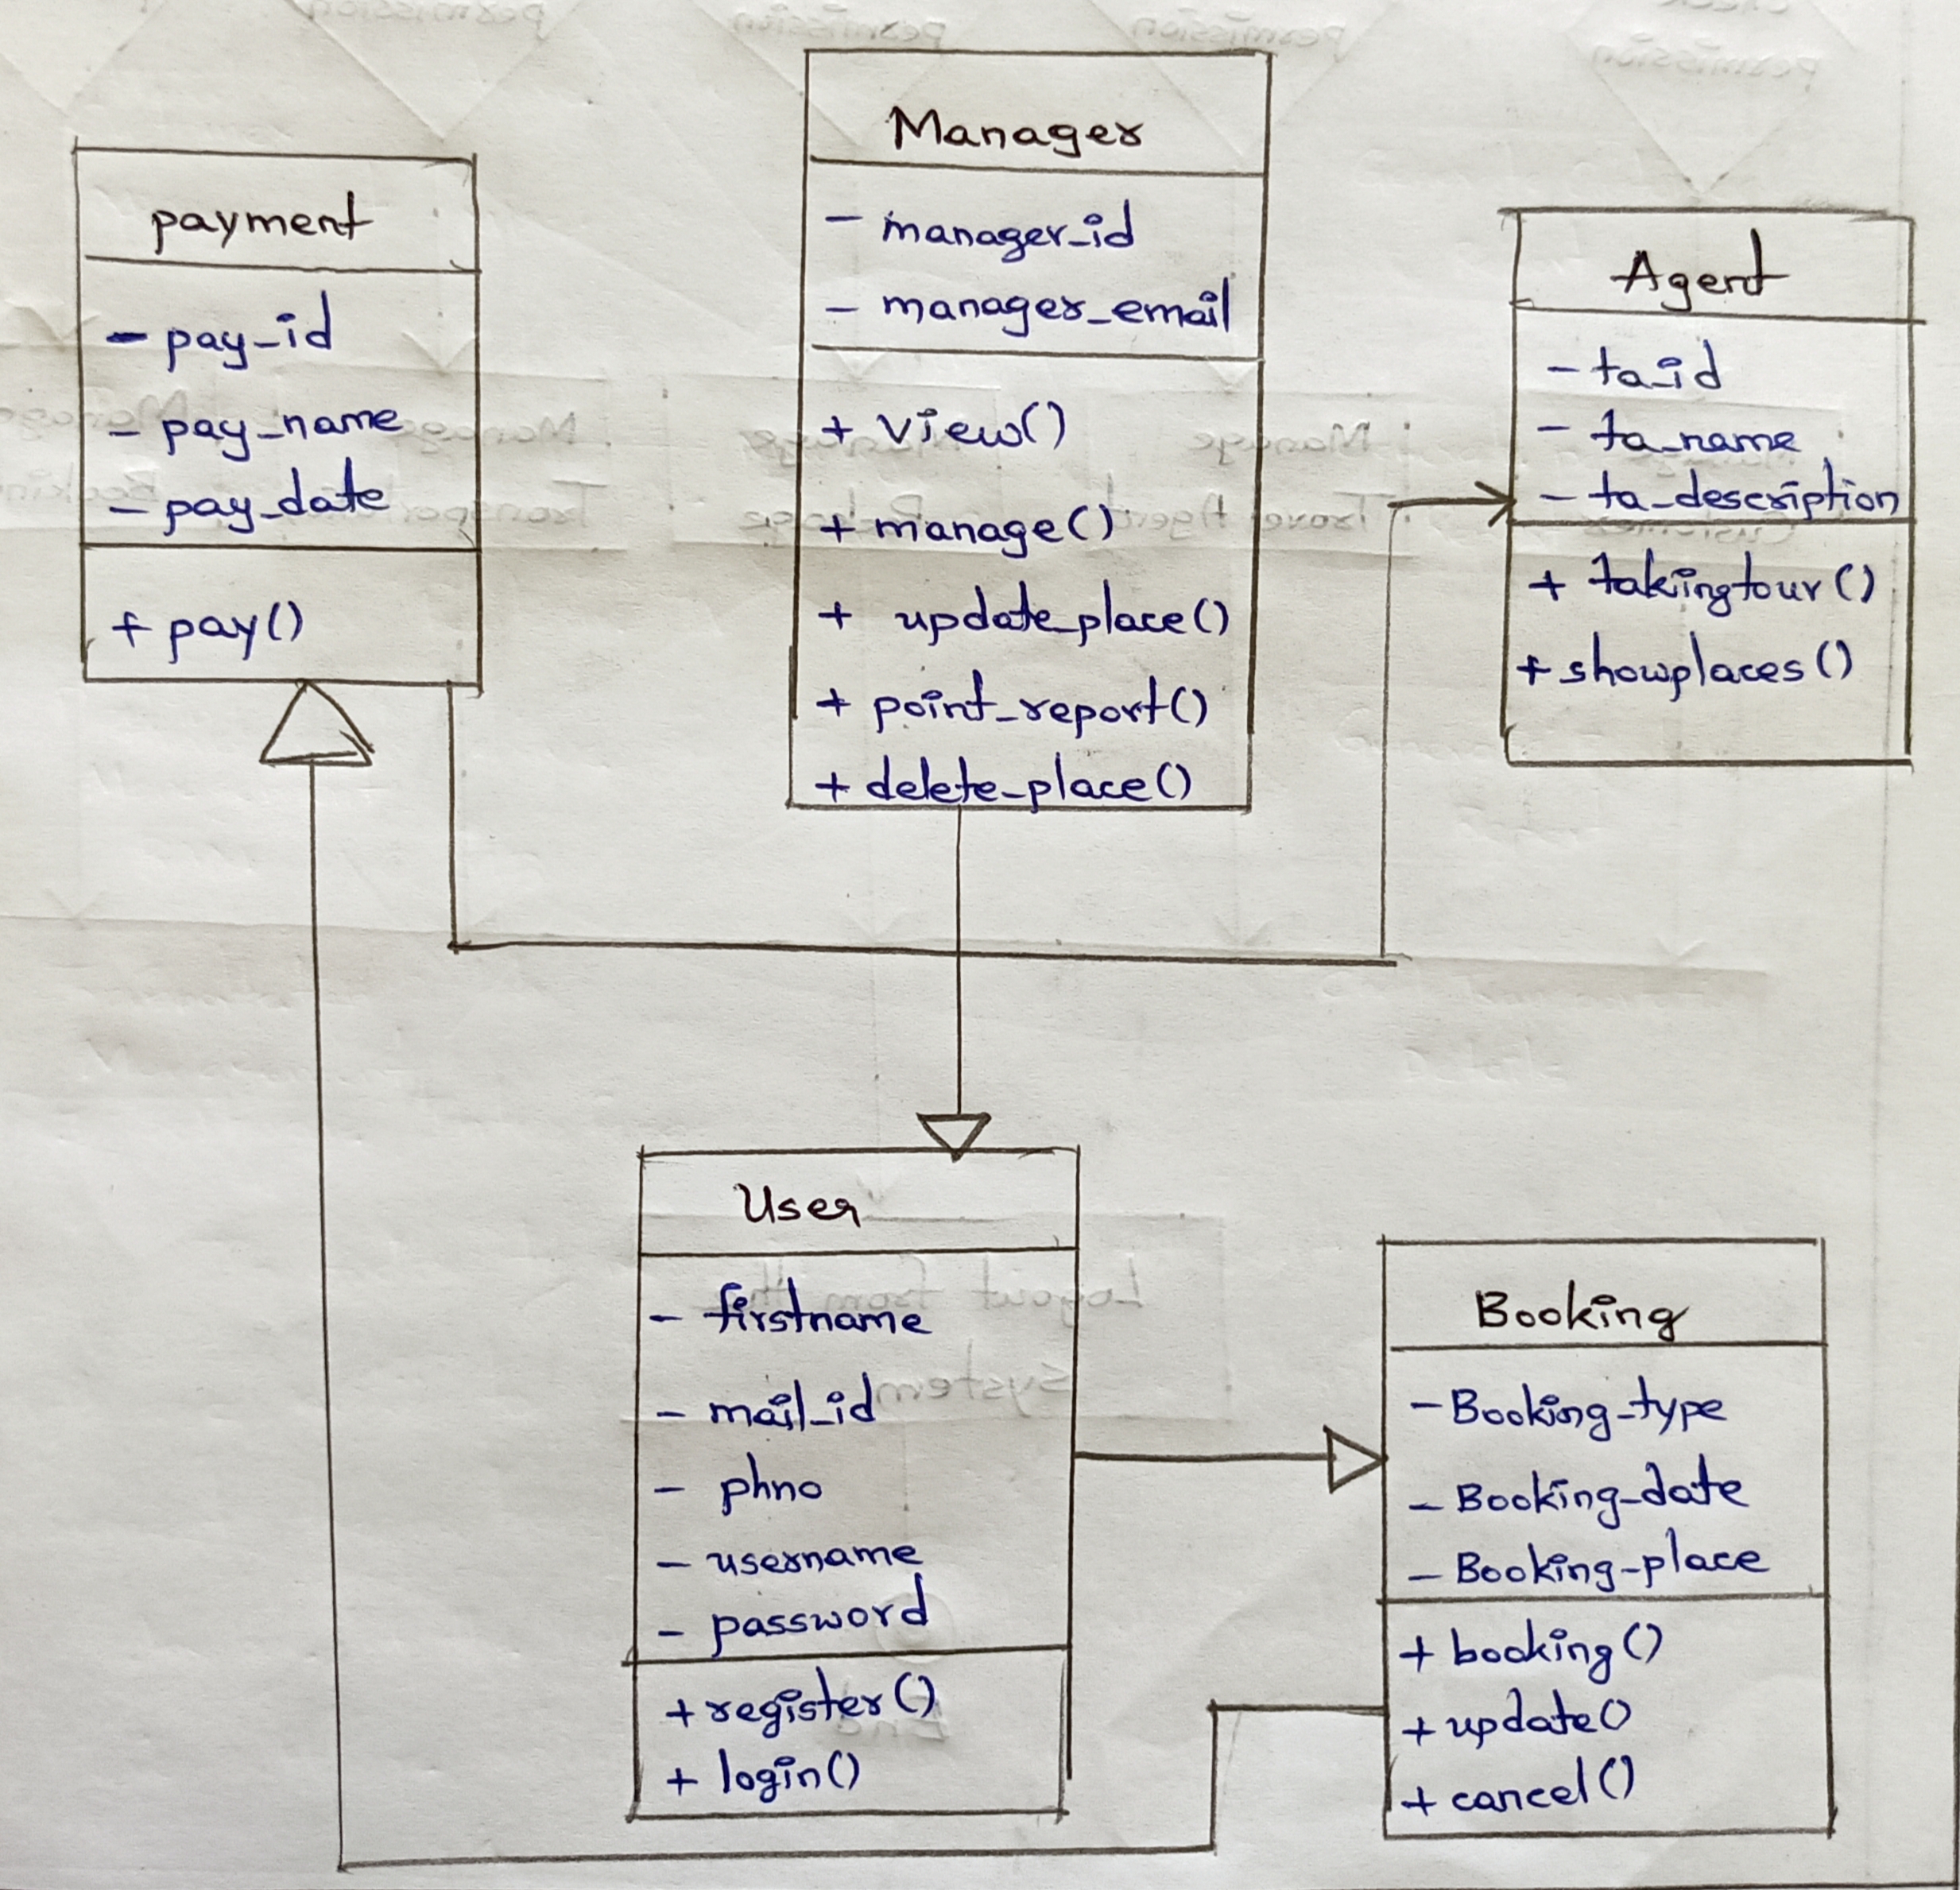 payment
- pay_id
- pay_name
- pay_date
+ pay()
Manager
- manager_id
- manager_email
+ view()
+ manage()
+ update_place()
+ point_report()
+ delete_place()
Agent
- ta_id
- ta_name
- ta_description
+ takingtour()
+ showplaces()
User
- firstname
- mail_id
- phno
- username
- password
+ register()
+ login()
Booking
- Booking_type
- Booking_date
- Booking_place
+ booking()
+ update()
+ cancel()